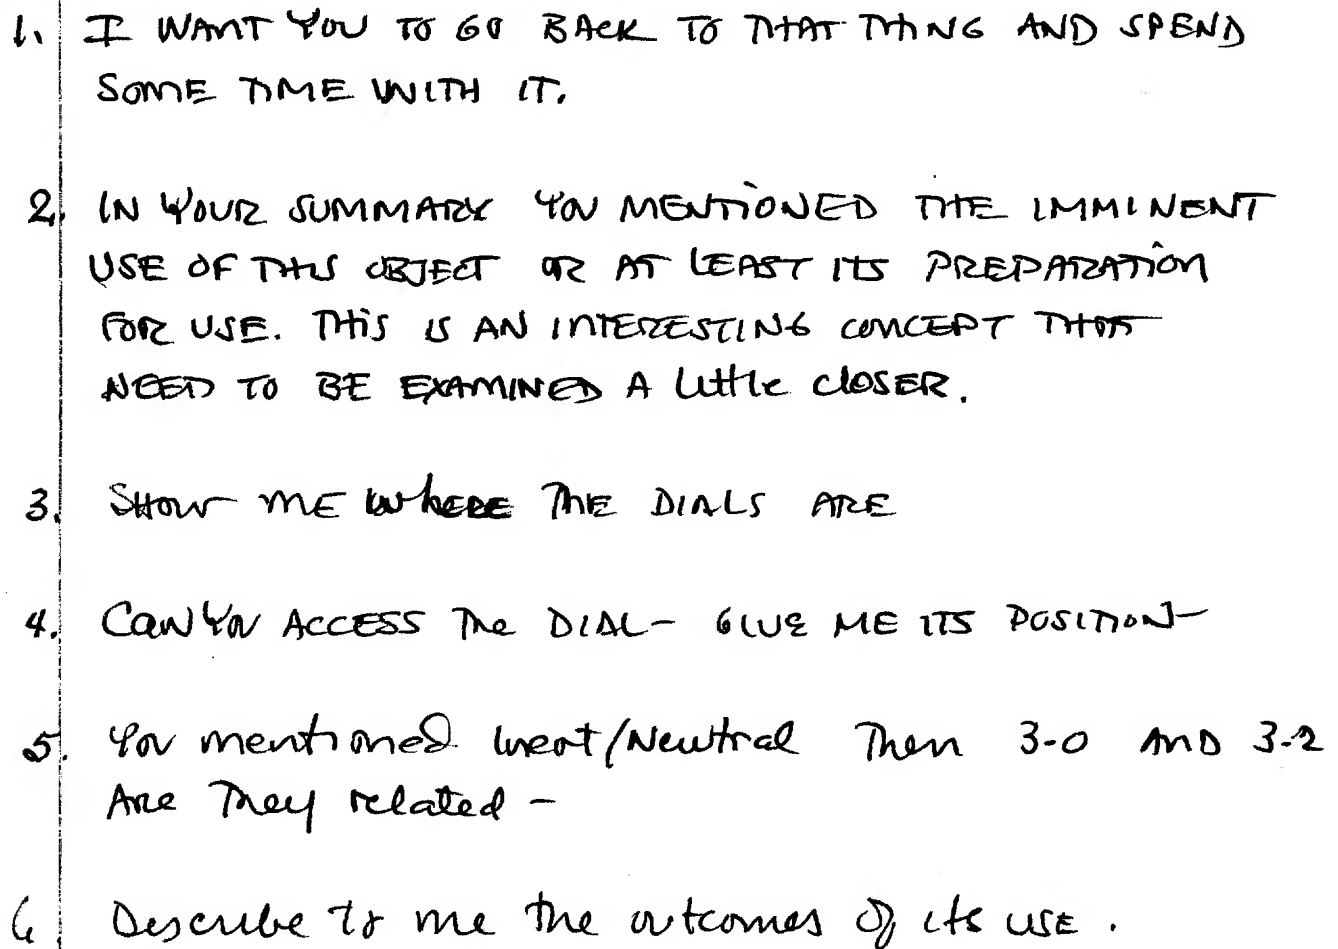 1. I WANT YOU TO GO BACK TO THAT THING AND SPEND
SOME TIME WITH IT.
2. IN YOUR SUMMARY YOU MENTIONED THE IMMINENT
USE OF THIS OBJECT OR AT LEAST ITS PREPARATION
FOR USE. THIS IS AN INTERESTING CONCEPT THAT
NEED TO BE EXAMINED A little closER.
3. SHOW ME WHERE THE DIALS ARE
4. CAN YOU ACCESS The DIAL - GIVE ME ITS POSITION -
5. You mentioned inert/Neutral Then 3-0 AND 3-2
Are They related -
6. Describe to me the outcomes of its USE.